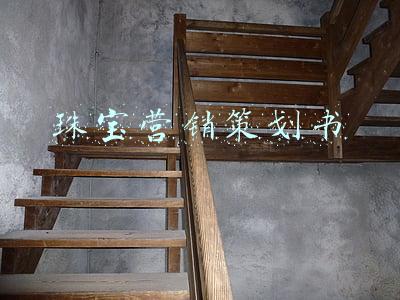 珠宝营销策划书